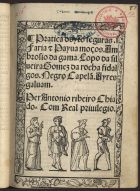 ¶ Pratica de oyto figuras.
Faria & Payua moços. Am
brosio da gama. Lopo da sil
ueira Gomez da rocha fidal
gos. Negro Capelã. Ayres
galuam.
Per Antonio ribeiro Chia
do. Com Real priuilegio.